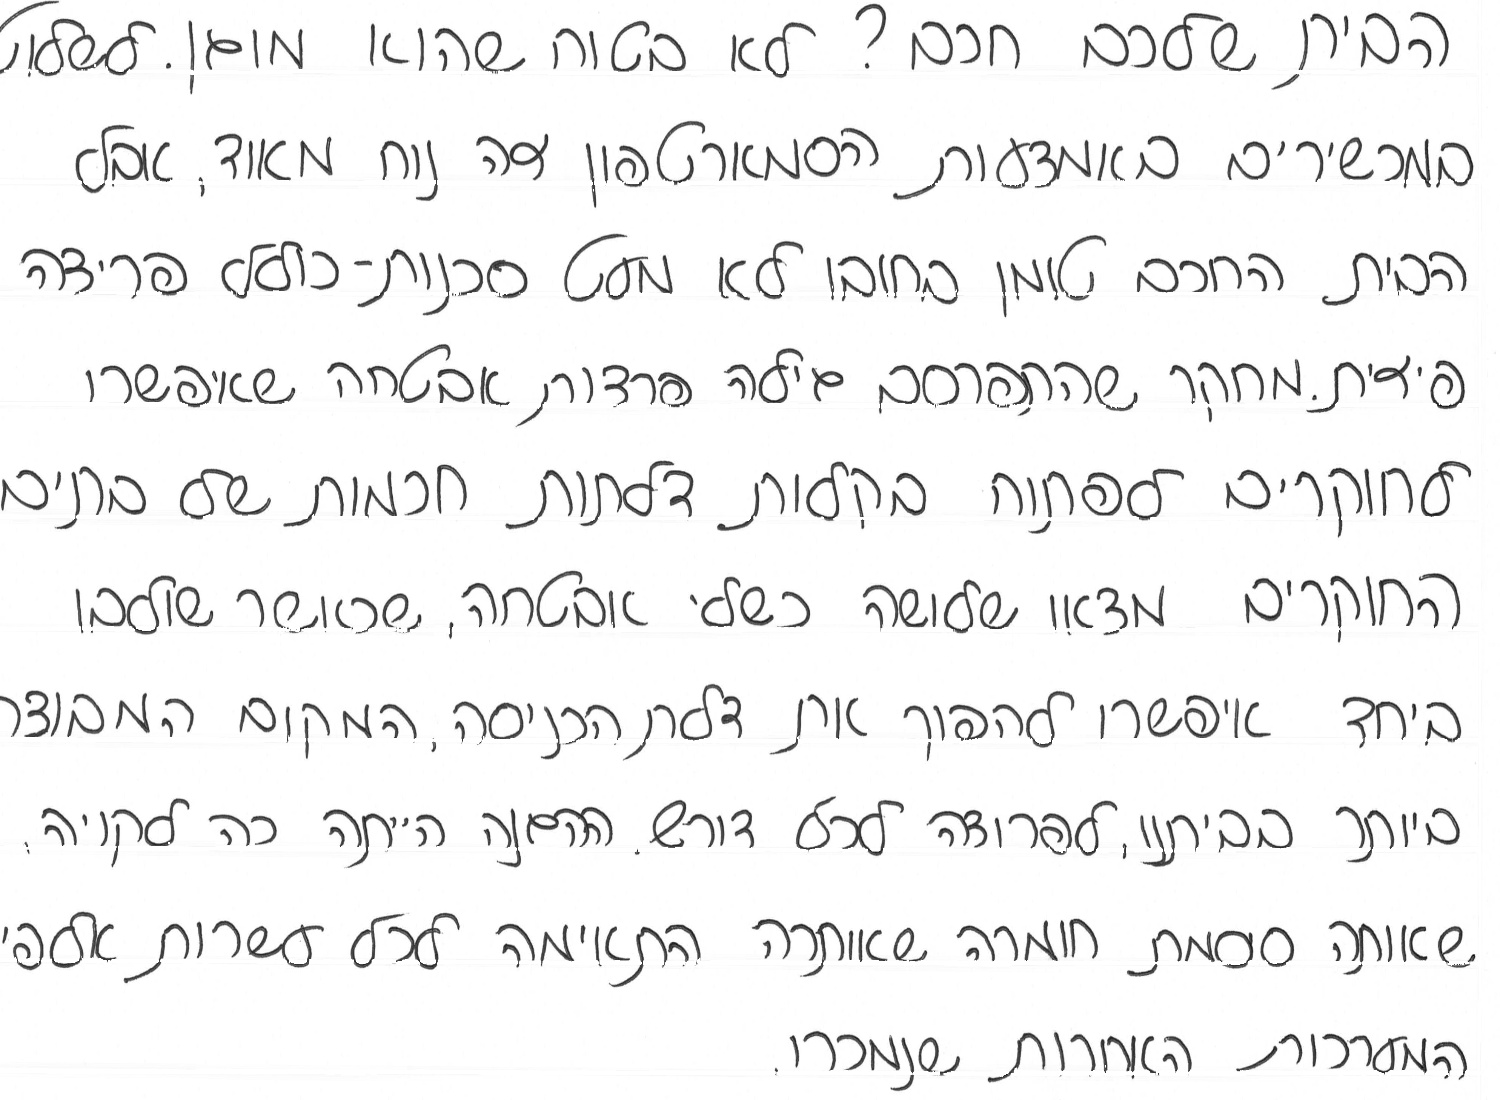 הבית שלכם חכם? לא בטוח שהוא מוגן. לשלוט
במכשירים באמצעות הסמארטפון זה נוח מאוד, אבל
הבית החכם טומן בחובו לא מעט סכנות - כולל פריצה
פיזית. מחקר שהתפרסם גילה פרצות אבטחה שאיפשרו
לחוקרים לפתוח בקלות דלתות חכמות של בתים
החוקרים מצאו שלושה כשלי אבטחה, שכאשר שולבו
ביחד איפשרו להפוך את דלת הכניסה, המקום המבוצר
ביותר בביתנו, לפרוצה לכל דורש. ההגנה הייתה כה לקויה,
שאותה סיסמת חומרה שאותרה התאימה לכל עשרות אלפי
המערכות האחרות שנמכרו.